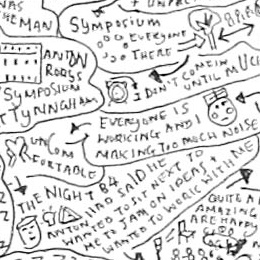 WAS
THE MAN
+ UNFRI
SYMPOSIUM
EVERYONE
THERE
ANTON
ROBBS
SYMPOSIUM
TYNNGHAM
I DON'T COME IN
UNTIL MUCH
EVERYONE IS
WORKING AND I
MAKING TOO MUCH NOISE
UNCOM
FORTABLE
THE NIGHT B4
ANTON HAD SAID HE
WANTED TO SIT NEXT TO
ME + JAM ON IDEAS +
WANTED TO WORK WITH ME
QUITE A
AMAZING
ARE HAPPY